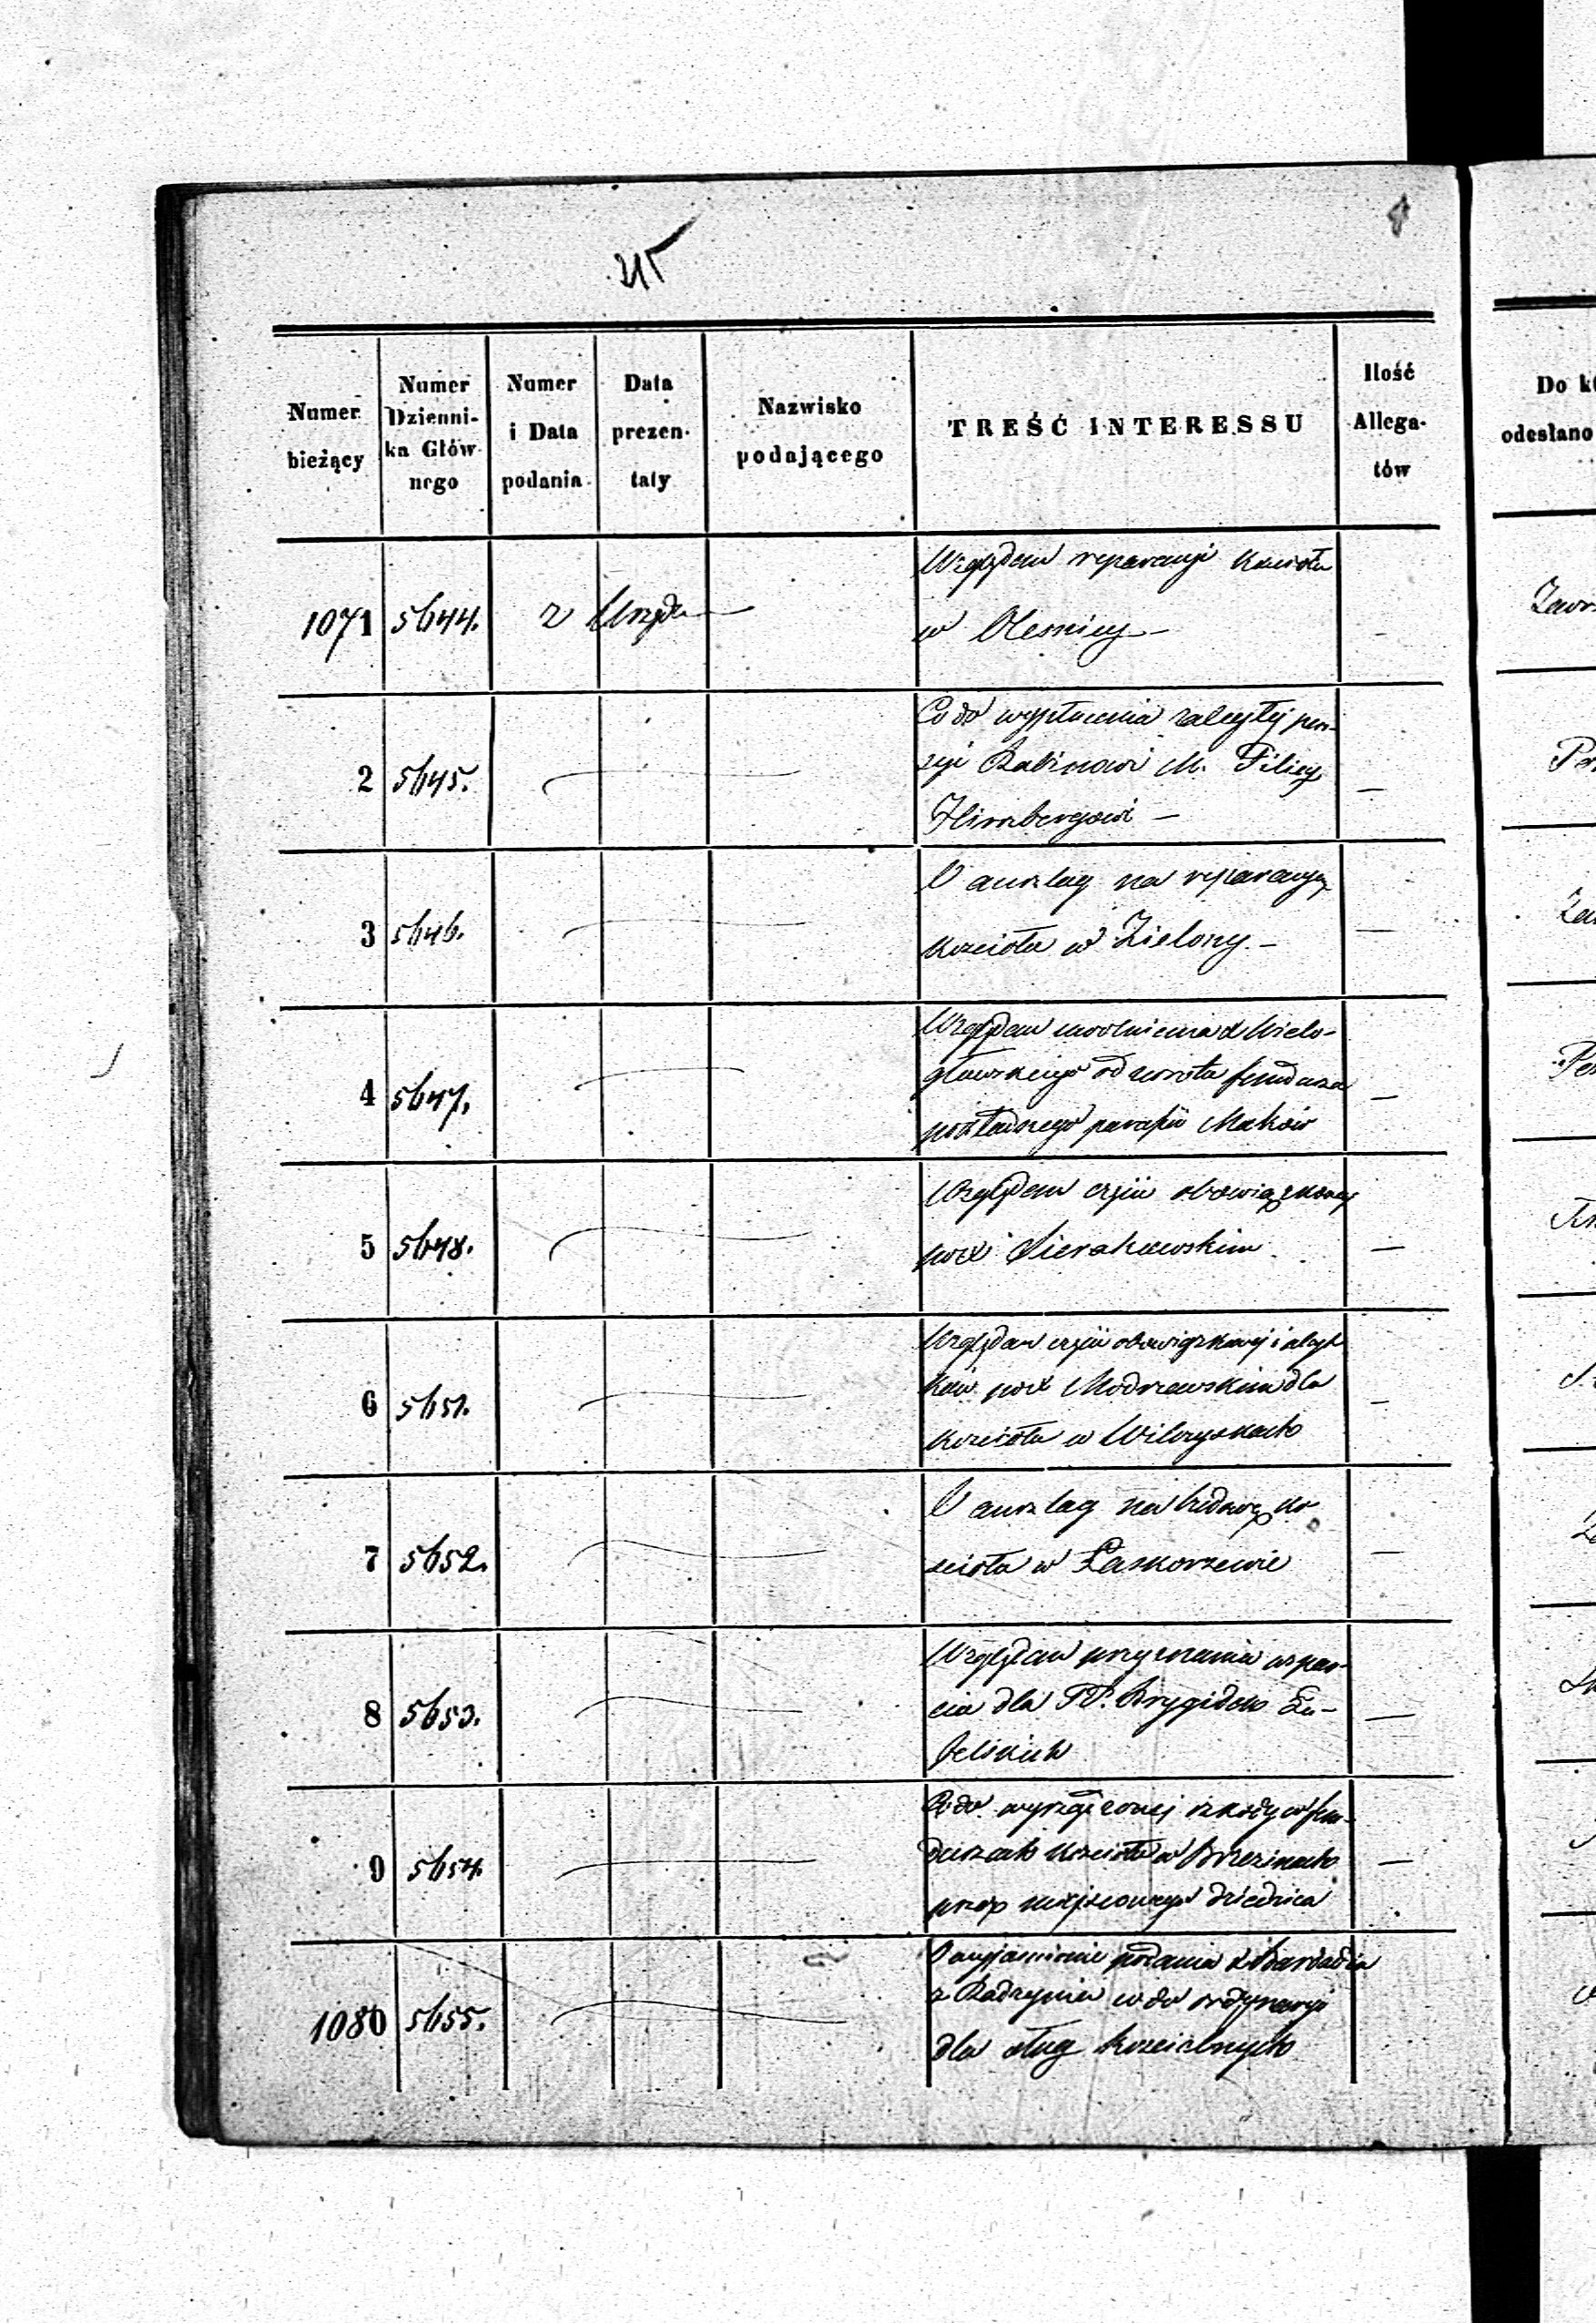 215
Numer bieżący | Numer Dzienni- ka Głów- nego | Numer i Data podania | Data prezen- taty | Nazwisko podającego | TREŚĆ INTERESSU | Ilość Allega- tów
odesłano
1071 | 5644. | z Urzędu | Względem reparacyi Kościoła
w Olesnicy –
2 | 5645. | Co do wypłacenia zaległej pen-
syi Rabinowi M. Pilicy
Hirszbergowi –
3 | 5646. | O anszlag na reparacyę
kościoła w Zielony –
4 | 5647. | Względem uwolnienia X Wielo-
głowskiego od zwrotu funduszu
parafii Maków
5 | 5648. | Względem obowiązkowej
po X Sierakowskim
6 | 5651. | Względem obowiązkowej i
po X Modrzewskim dla
kościoła w Wilczyskach
7 | 5652. | O anszlag na budowę ko
scioła w Łaskorzewie
8 | 5653. | Względem przyznania wspar-
cia dla PP. Brygidek Lu-
belskich
9 | 5654. | Co do wyrządzonej szkody w fun-
duszach kościoła w Brzezinach
przez miejscowego dziedzica
1080 | 5655. | O wyjasnienie podania X
z Radzymina co do ordynaryi
dla sług kościelnych